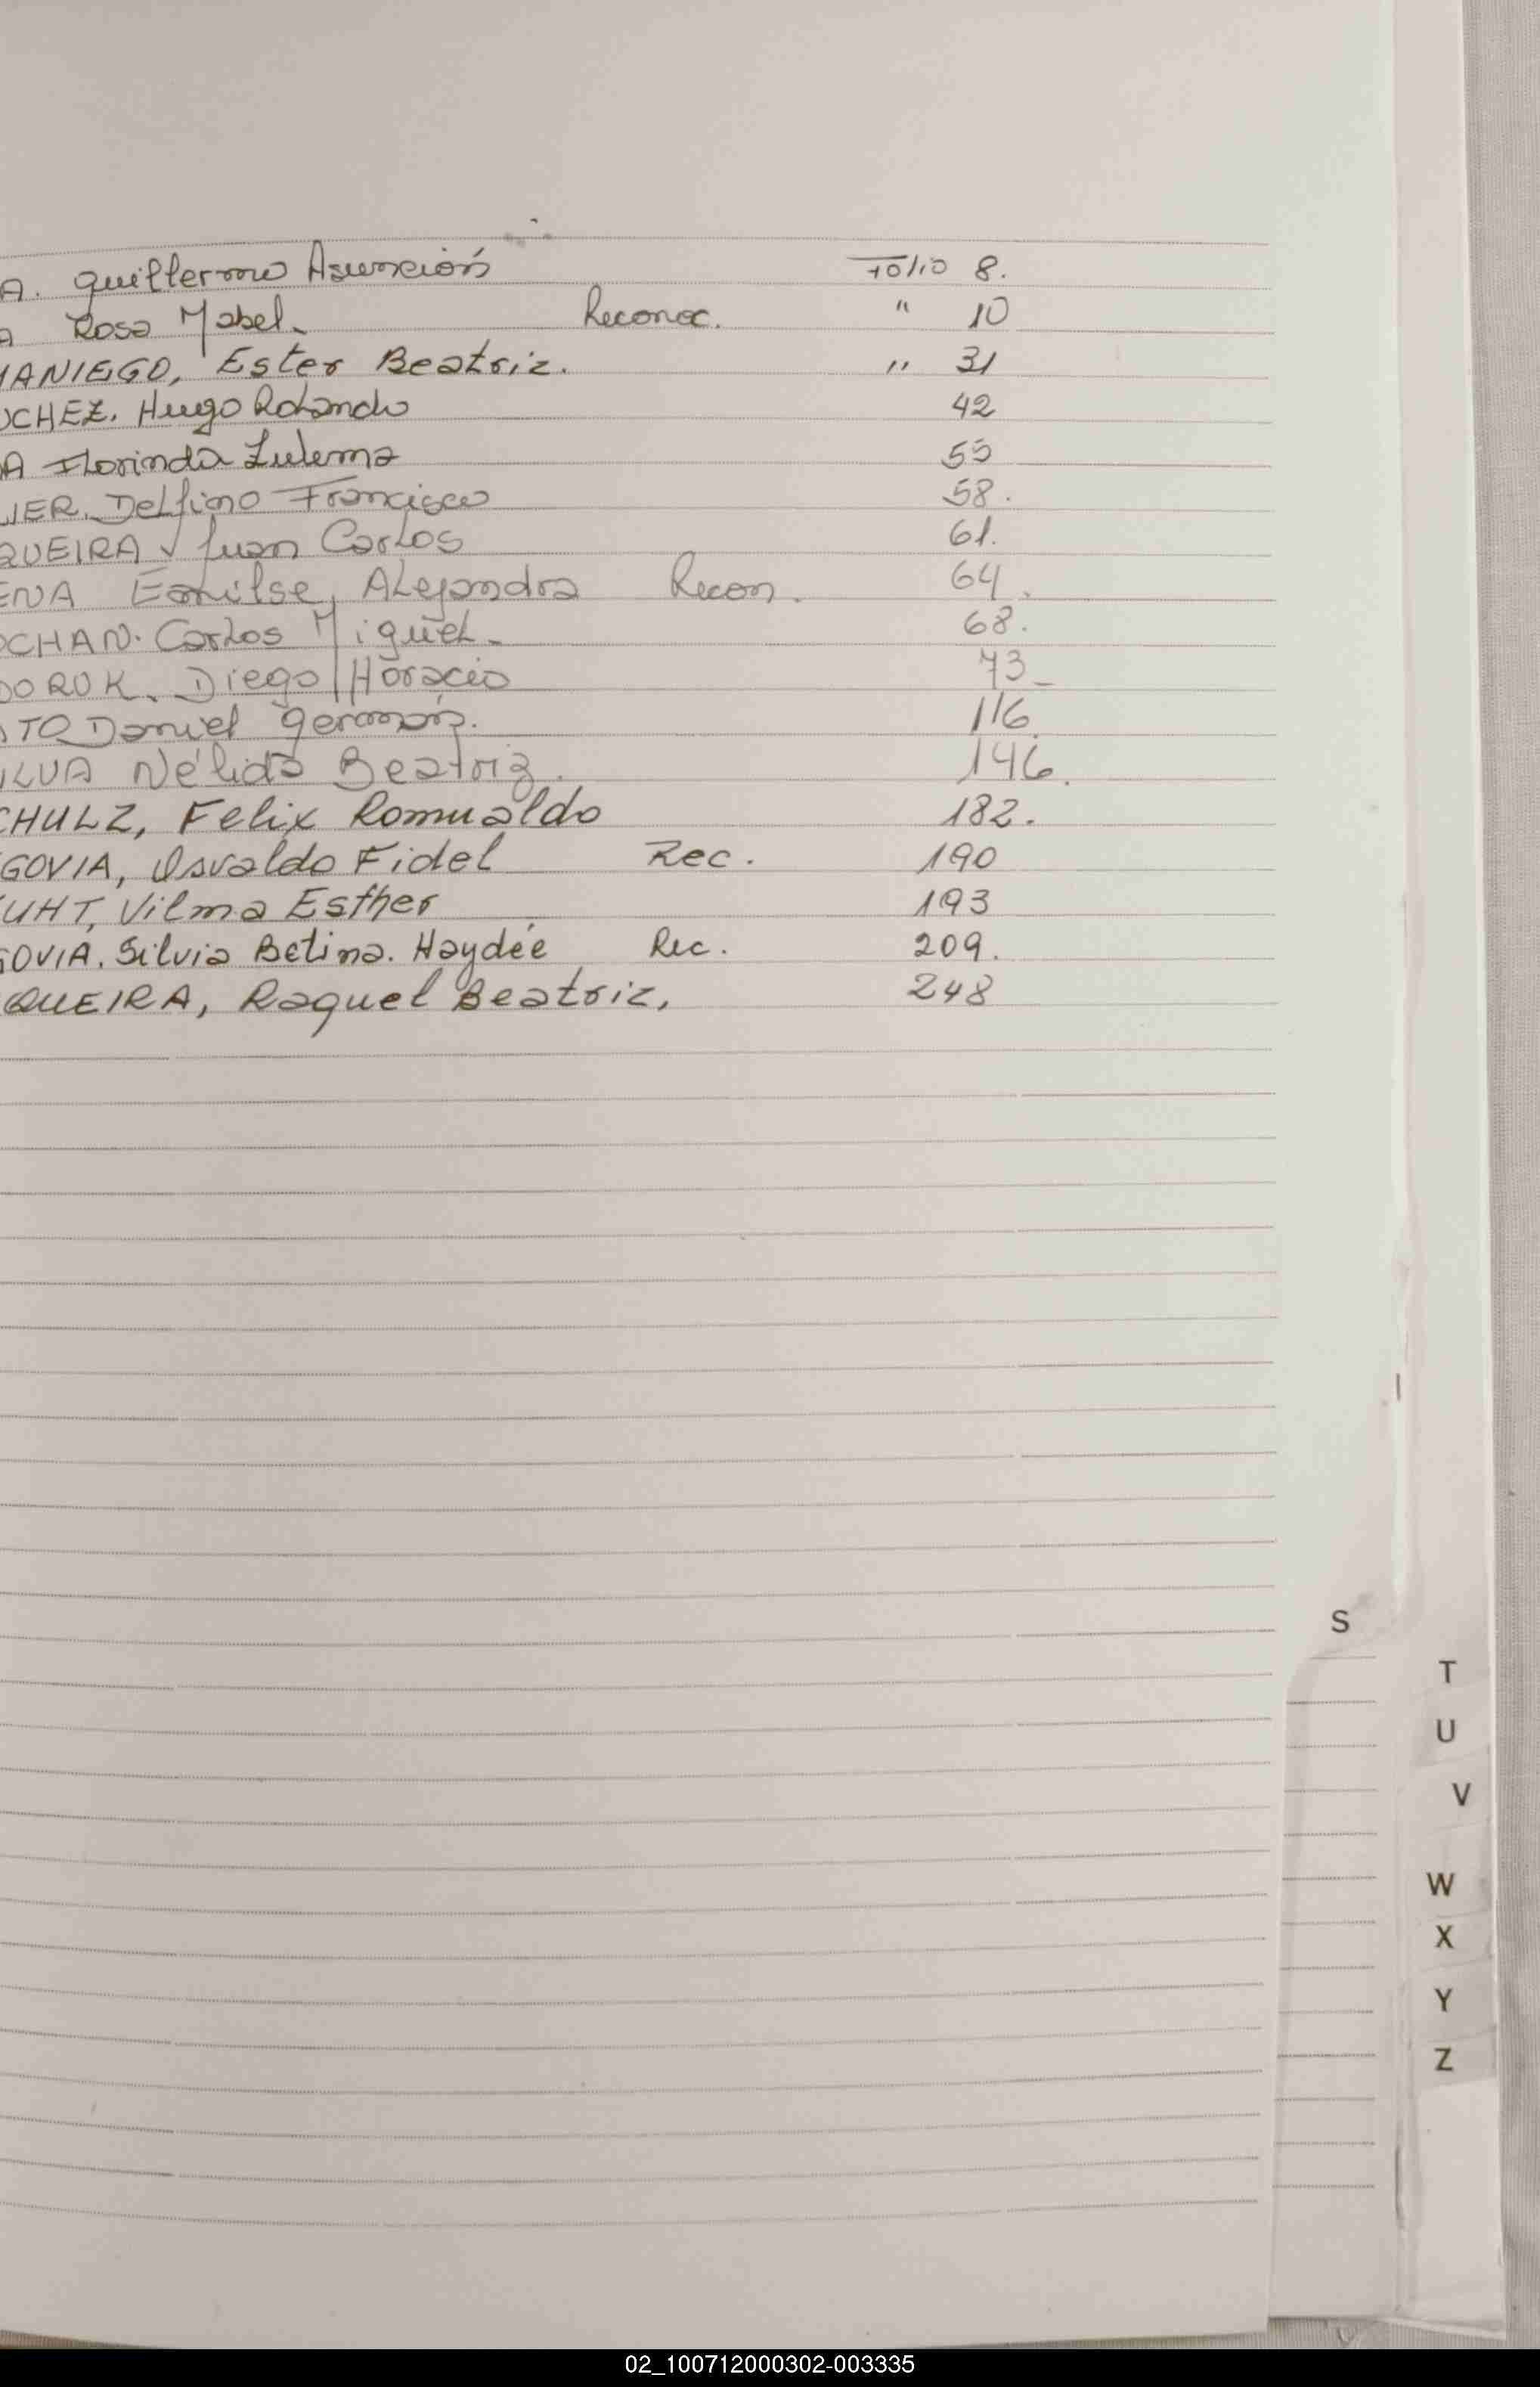 A. Guillermo Asunción Folio 8.
A Rosa Mabel. Reconoc. " 10
MANIEGO, Ester Beatriz. " 31
CHEZ. Hugo Rolando 42
A Florinda Zulema 55
IER. Delfino Francisco 58.
QUEIRA Juan Carlos 61.
ENA Emilse Alejandra Recon. 64.
CHAN. Carlos Miguel. 68.
DORUK. Diego Horacio 73_
TO Daniel Germán. 116.
ILVA Nélida Beatriz. 146.
CHULZ, Felix Romualdo 182.
GOVIA, Osvaldo Fidel Rec. 190
UHT, Vilma Esther 193
GOVIA. Silvia Betina. Haydée Rec. 209.
QUEIRA, Raquel Beatriz, 248
S
T
U
V
W
X
Y
Z
02_100712000302-003335